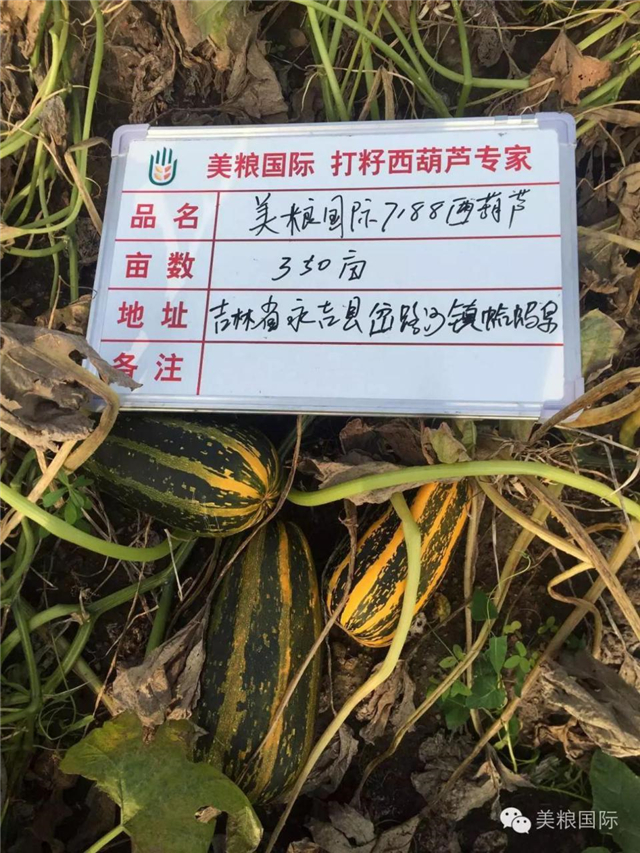 美粮国际 打籽西葫芦专家
品名 美粮国际7188西葫芦
亩数 350亩
地址 吉林省永吉县岔路河镇蛤蚂泉
备注
美粮国际